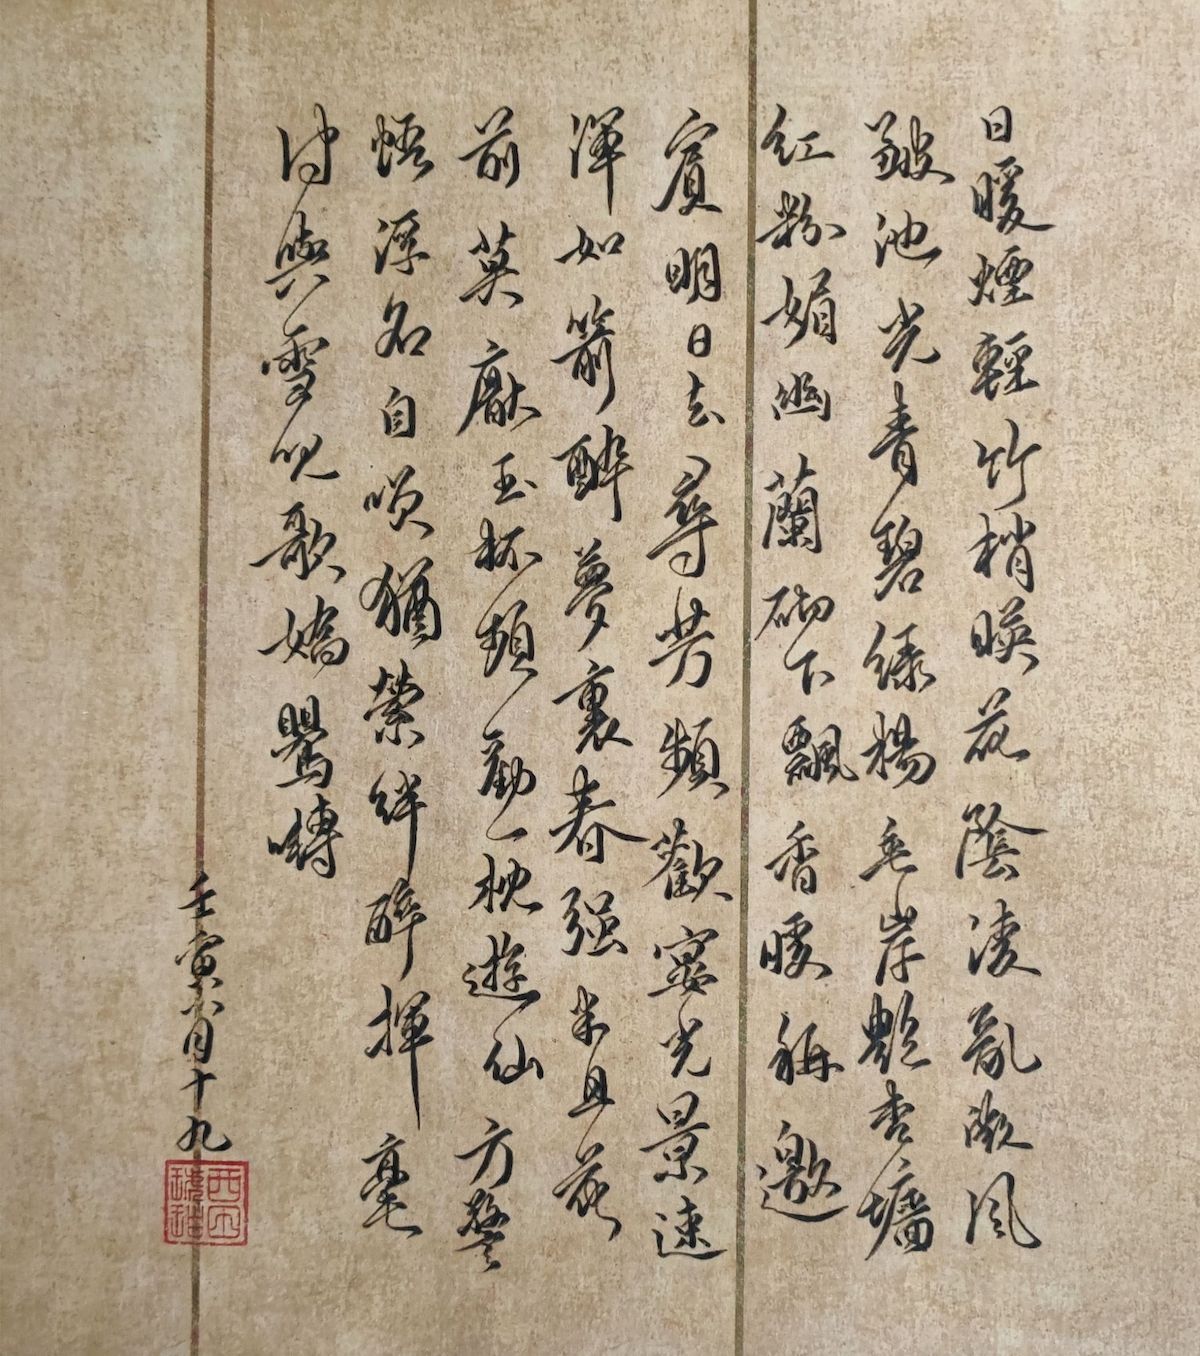 日暖煙輕竹梢暎花陰凌亂微風
皴池光青碧綠楊垂岸艷杏墻
紅粉媚幽蘭砌下飄香暖稱邀
賓明日去尋芳頻歡宴光景速
渾如箭酔夢裏春强半且花
前莫厭玉杯頻勸一枕遊仙方警
悟浮名自嘆猶縈絆醉揮毫
付與雪兒歌嬌鶯囀
壬寅六月十九